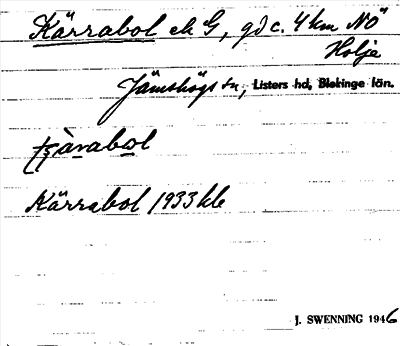 Kärrabol ek G, gd c. 4 km NÖ
Holje
Jämshögs sn, Listers hd, Blekinge län.
Kärrabol 1933 kle
J. SWENNING 1946